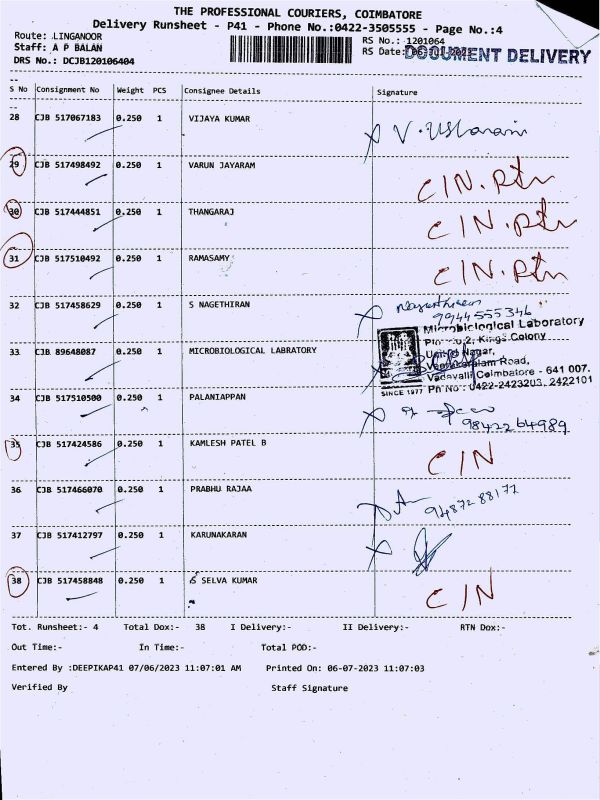 THE PROFESSIONAL COURIERS, COIMBATORE
Delivery Runsheet - P41 - Phone No.:0422-3505555 - Page No.:4
Route: LINGANOOR
RS No.: 1201064
Staff: A P BALAN
RS Date:
DOCUMENT DELIVERY
DRS No.: DCJB120106404
S No Consignment No Weight PCS Consignee Details Signature
28 CJB 517067183 0.250 1 VIJAYA KUMAR
29 CJB 517498492 0.250 1 VARUN JAYARAM C/N. Rtn
30 CJB 517444851 0.250 1 THANGARAJ C/N. Rtn
31 CJB 517510492 0.250 1 RAMASAMY C/N. Rtn
32 CJB 517458629 0.250 1 S NAGETHIRAN
9944555346
33 CJB 89648087 0.250 1 MICROBIOLOGICAL LABRATORY
Microbiological Laboratory
Kings Colony
Nagar,
Road,
Vadavalli Coimbatore - 641 007.
SINCE 1977 Ph No : 0422-2423203, 2422101
34 CJB 517510500 0.250 1 PALANIAPPAN
9842264989
35 CJB 517424586 0.250 1 KAMLESH PATEL B C/N
36 CJB 517466070 0.250 1 PRABHU RAJAA 9487288172
37 CJB 517412797 0.250 1 KARUNAKARAN
38 CJB 517458848 0.250 1 SELVA KUMAR C/N
Tot. Runsheet:- 4 Total Dox:- 38 I Delivery:- II Delivery:- RTN Dox:-
Out Time:- In Time:- Total POD:-
Entered By :DEEPIKAP41 07/06/2023 11:07:01 AM Printed On: 06-07-2023 11:07:03
Verified By Staff Signature